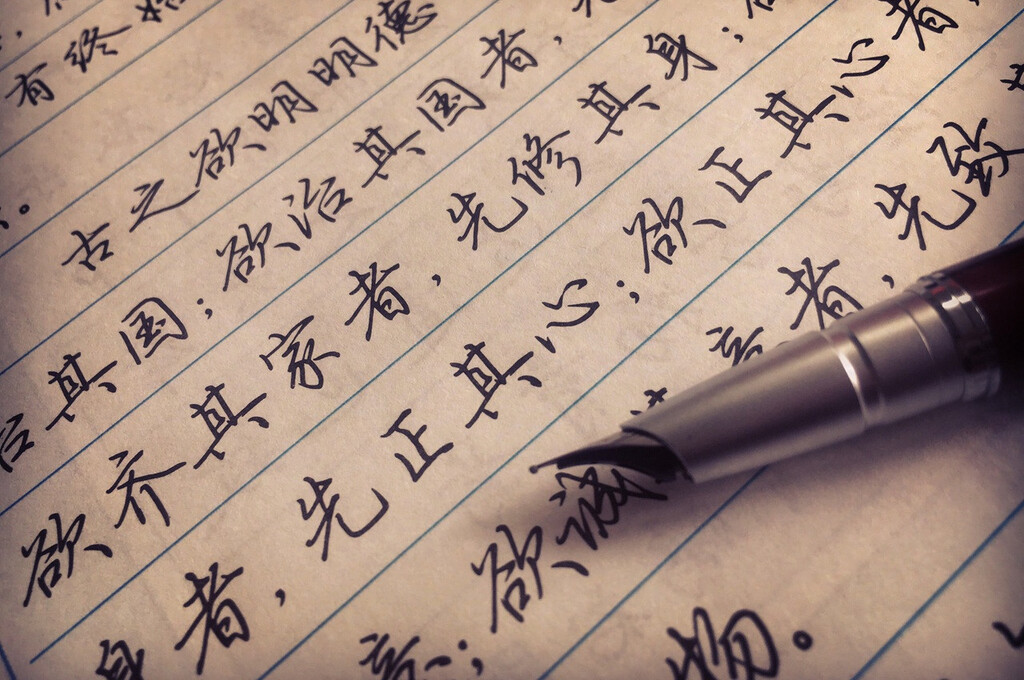 有终始
。
古之欲明明德
治其国；欲治其国者，先
欲齐其家者，先修其身；
身者，先正其心；欲正其心者
意；欲诚其意者，先致
物。